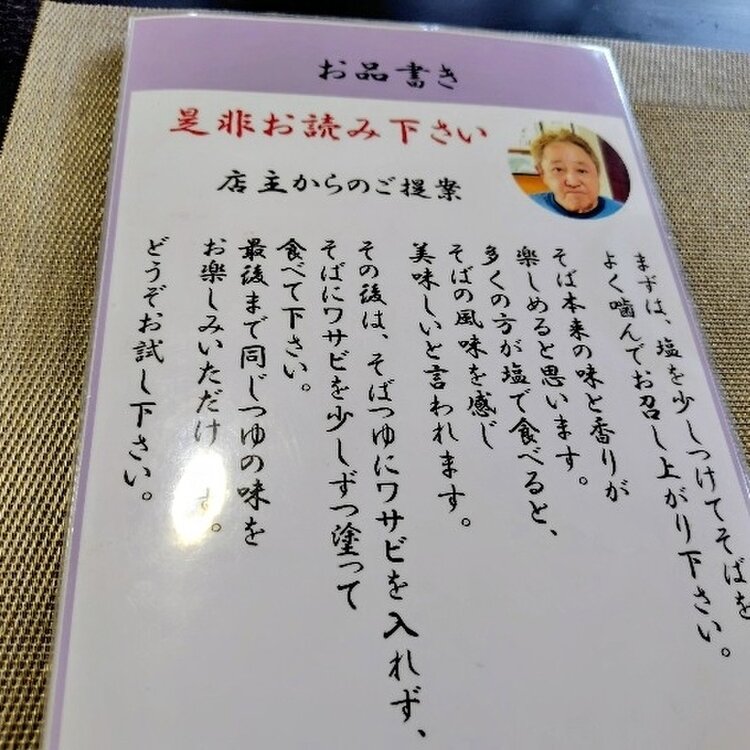 お品書き
是非お読み下さい
店主からのご提案
まずは、塩を少しつけてそばを
よく噛んでお召し上がり下さい。
そば本来の味と香りが
楽しめると思います。
多くの方が塩で食べると、
そばの風味を感じ
美味しいと言われます。
その後は、そばつゆにワサビを入れず、
そばにワサビを少しずつ塗って
食べて下さい。
最後まで同じつゆの味を
お楽しみいただけます。
どうぞお試し下さい。